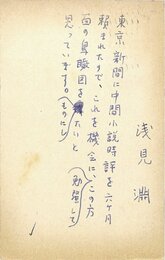 浅見淵
東京新聞に中間小説時評を六ケ月
頼まれたので、これを機会に、この方
面の鳥瞰図をものにしたいと勉強して
思っています。